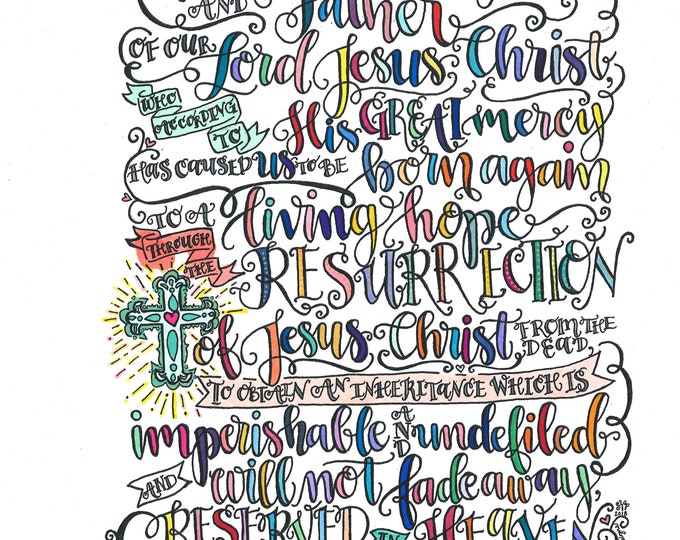 AND Father
OF OUR Lord Jesus Christ,
WHO ACCORDING TO His GREAT mercy
HAS CAUSED us TO BE born again
TO A living hope
THROUGH THE RESURRECTION
of Jesus Christ, FROM THE DEAD,
TO OBTAIN AN INHERITANCE WHICH IS
imperishable AND undefiled
AND will not fade away,
RESERVED IN HEAVEN
2018